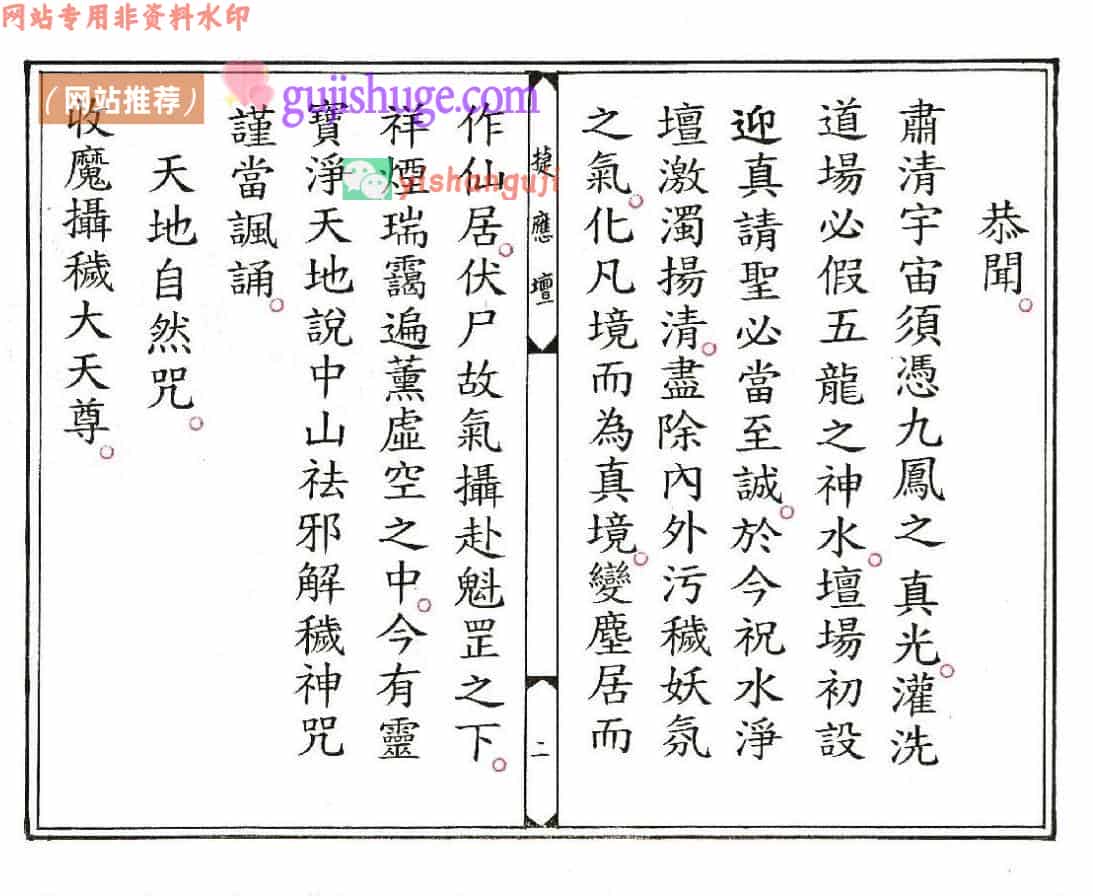 网站专用非资料水印
(网站推荐)
gujishuge.com
yishanguji
恭聞。
肅清宇宙須憑九鳳之真光。灌洗
道場必假五龍之神水。壇場初設
迎真請聖必當至誠。於今祝水淨
壇激濁揚清。盡除內外污穢妖氛
之氣。化凡境而為真境。變塵居而
捷應壇
二
作仙居。伏尸故氣攝赴魁罡之下。
祥煙瑞靄遍薰虛空之中。今有靈
寶淨天地說中山祛邪解穢神咒
謹當諷誦。
天地自然咒。
收魔攝穢大天尊。